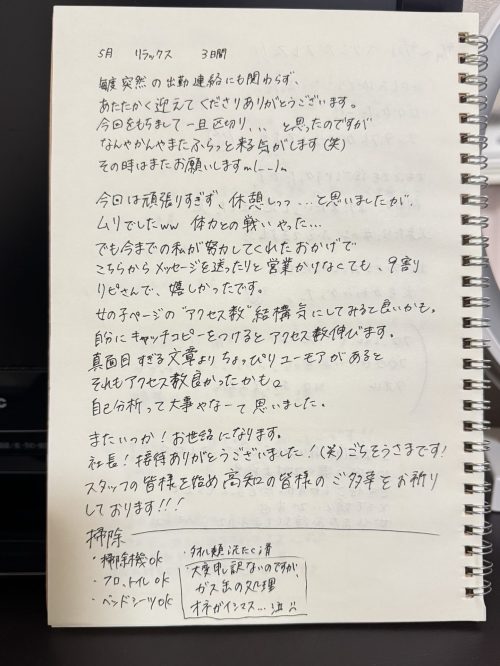 5月 リラックス 3日間
毎度突然の出勤連絡にも関わらず、
あたたかく迎えてくださりありがとうございます。
今回をもちまして一旦区切り、、、と思ったのですが
なんやかんやまたふらっと来る気がします(笑)
その時はまたお願いしますm(_ _)m
今回は頑張りすぎず、休憩しつつ...と思いましたが、
ムリでしたww 体力との戦いやった...
でも今までの私が努力してくれたおかげで
こちらからメッセージを送ったりと営業かけなくても、9割
リピさんで、嬉しかったです。
女の子ページの"アクセス数"結構気にしてみると良いかも。
自分にキャッチコピーをつけるとアクセス数伸びます。
真面目すぎる文章よりちょっぴりユーモアがあると
それもアクセス数良かったかも。
自己分析って大事やなーて思いました。
またいつか!お世話になります。
社長!接待ありがとうございました!(笑)ごちそうさまです!
スタッフの皆様を始め高知の皆様のご多幸をお祈り
しております!!!
掃除
・掃除機ok
・フロ、トイレok
・ベッドシーツok
・タオル類洗たく済
大変申し訳ないのですが、
ガス缶の処理
オネガイシマス...